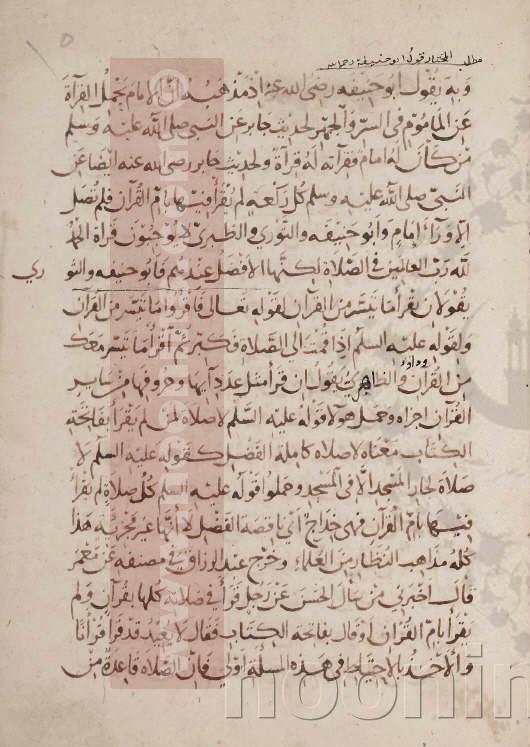 مطلب المختار قول ابو حنيفة رحمه الله
وبه يقول أبو حنيفه رضى الله عنه اذ مذهبه ان الامام يحمل القرآة
عن الماموم فى السر والجهر لحديث جابر عن النبى صلى الله عليه وسلم
من كان له امام فقرآته له قرآة ولحديث جابر رضى الله عنه ايضا عن
النبى صلى الله عليه وسلم كل ركعه لم يقرأ فيها بام القرآن فلم تصل
الا ورآء امام وابو حنيفه والثوري والطبرى لا يوجبون قرآة الحمد
لله رب العالمين فى الصلاة لكنها الافضل عندهم فابو حنيفه والثو
ري
يقولان يقرأ ما تيسر من القرآن لقوله تعالى فاقرؤا ما تيسر من القرآن
ولقوله عليه السلم اذا قمت الى الصلاة فكبر ثم اقرأ ما تيسر معك
وداود
من القرآن والظاهرى يقولان قرأ مثل عدد آيها وحروفها من ساير
القرآن اجزاه وحمل هولا قوله عليه السلم لا صلاة لمن لم يقرأ بفاتحة
الكتاب معناه لا صلاه كاملة الفضل كقوله عليه السلم لا
صلاة لجار المسجد الا فى المسجد وحملوا قوله عليه السلم كل صلاة لم يقرأ
فيها بام القرآن فهى خداج اي ناقصة الفضل لا انها غير مجزيه هذا
كله مذاهب النظار من العلماء وخرج عبد الرزاق فى مصنفه عن معمر
قال اخبرني من سال الحسن عن رجل قرأ فى صلاته كلها بقرآن ولم
يقرأ بام القرآن او قال بفاتحة الكتاب فقال لا يعيد قد قرأ قرأنا
والاخذ بالاحتياط فى هذه المسلة اولى فان الصلاة قاعدة من
noorin